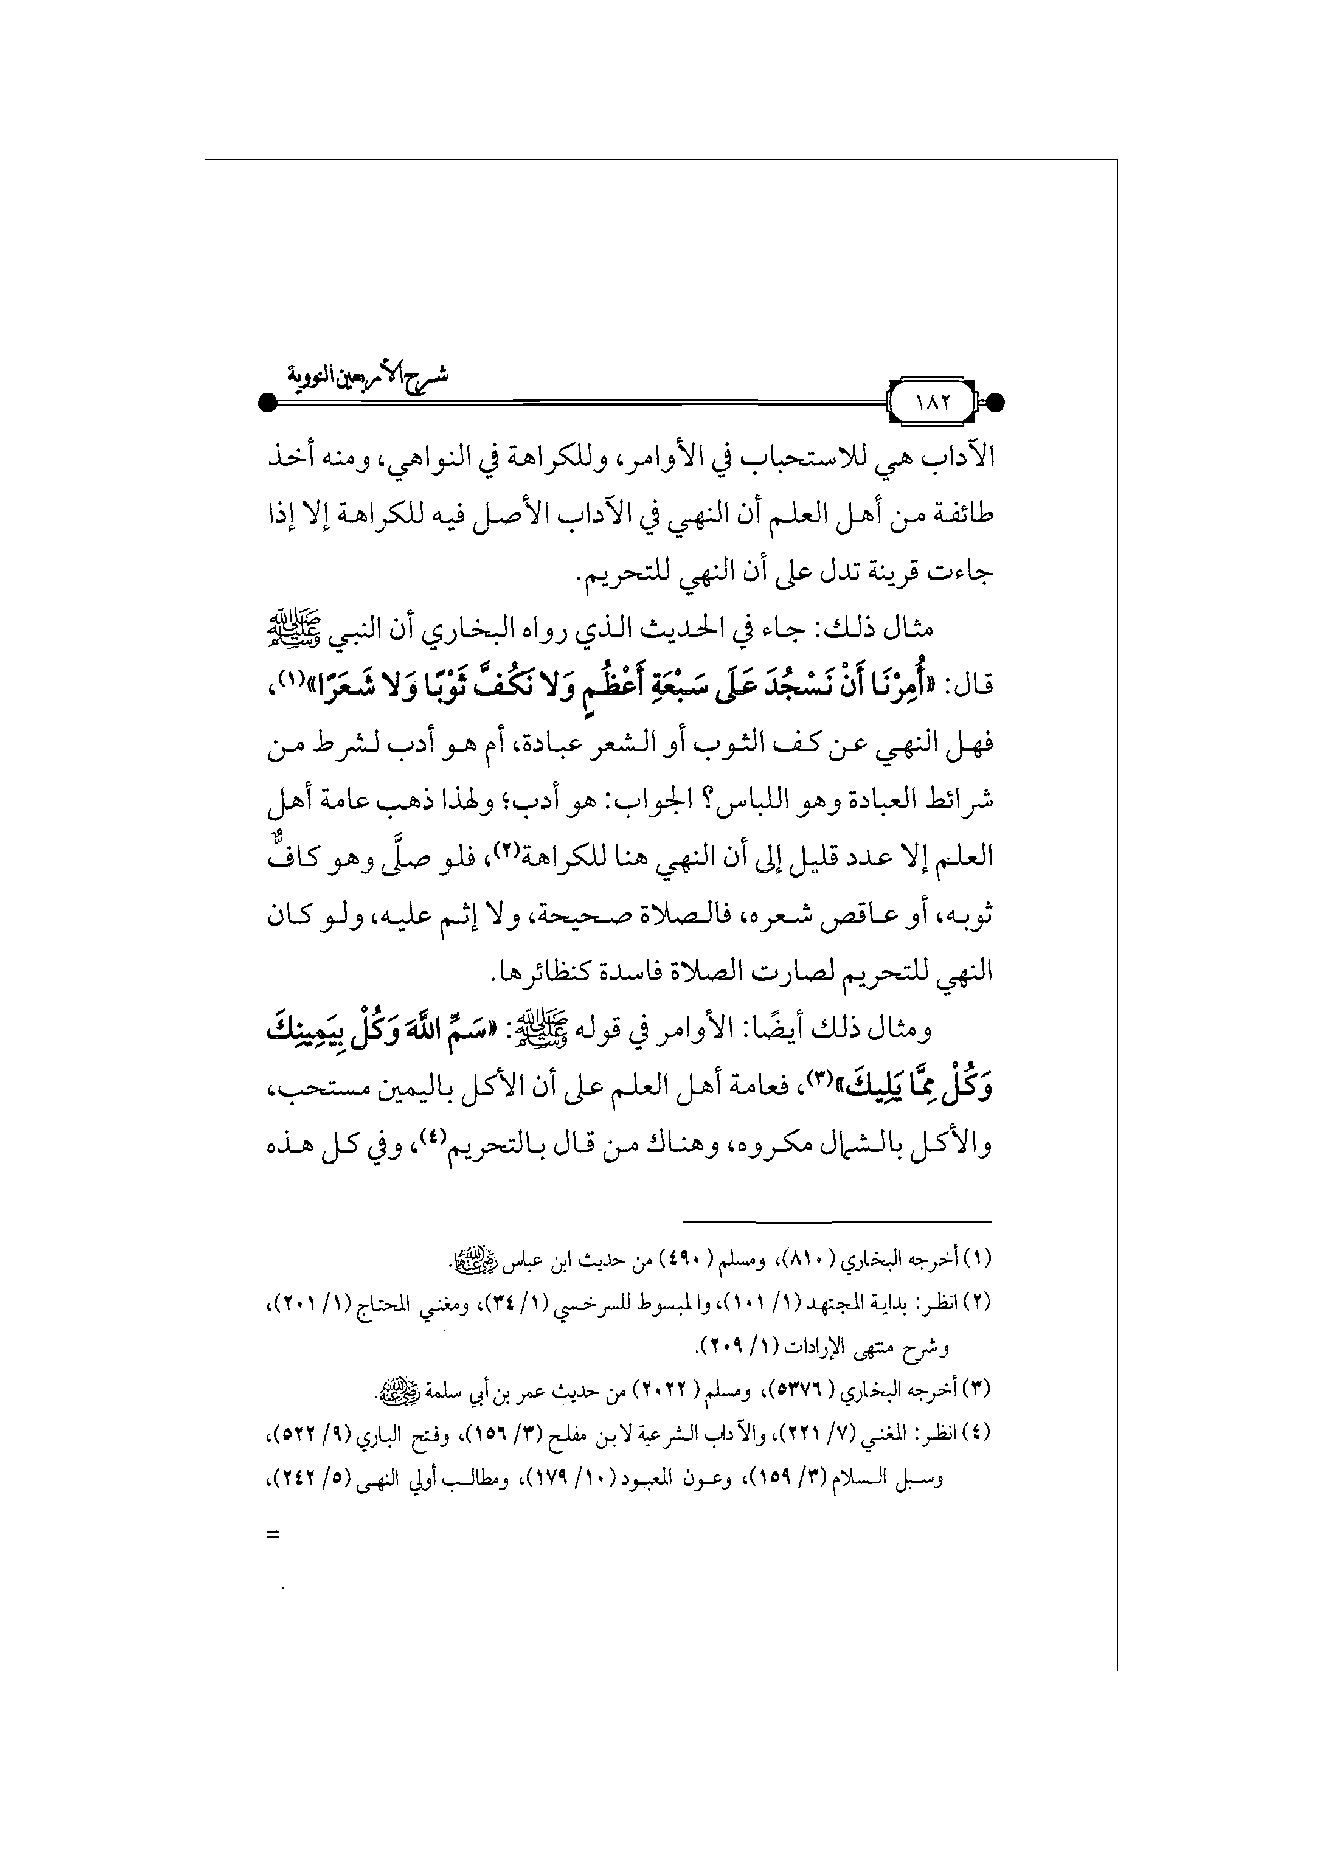 شرح الأربعين النووية
١٨٢
الآداب هي للاستحباب في الأوامر، وللكراهة في النواهي، ومنه أخذ
طائفة من أهل العلم أن النهي في الآداب الأصل فيه للكراهة إلا إذا
جاءت قرينة تدل على أن النهي للتحريم.
مثال ذلك: جاء في الحديث الذي رواه البخاري أن النبي ﷺ
قال: «أُمِرْنَا أَنْ نَسْجُدَ عَلَى سَبْعَةِ أَعْظُمٍ وَلا نَكُفَّ ثَوْبًا وَلا شَعَرًا»(١)،
فهل النهي عن كف الثوب أو الشعر عبادة، أم هو أدب لشرط من
شرائط العبادة وهو اللباس؟ الجواب: هو أدب؛ ولهذا ذهب عامة أهل
العلم إلا عدد قليل إلى أن النهي هنا للكراهة(٢)، فلو صلَّى وهو كافٌّ
ثوبه، أو عاقص شعره، فالصلاة صحيحة، ولا إثم عليه، ولو كان
النهي للتحريم لصارت الصلاة فاسدة كنظائرها.
ومثال ذلك أيضًا: الأوامر في قوله ﷺ: «سَمِّ اللَّهَ وَكُلْ بِيَمِينِكَ
وَكُلْ مِمَّا يَلِيكَ»(٣)، فعامة أهل العلم على أن الأكل باليمين مستحب،
والأكل بالشمال مكروه، وهناك من قال بالتحريم(٤)، وفي كل هذه
(١) أخرجه البخاري (٨١٠)، ومسلم (٤٩٠) من حديث ابن عباس رضي الله عنه.
(٢) انظر: بداية المجتهد (١/ ١٠١)، والمبسوط للسرخسي (١/ ٣٤)، ومغني المحتاج (١/ ٢٠١)،
وشرح منتهى الإرادات (١/ ٢٠٩).
(٣) أخرجه البخاري (٥٣٧٦)، ومسلم (٢٠٢٢) من حديث عمر بن أبي سلمة رضي الله عنه.
(٤) انظر: المغني (٧/ ٢٢١)، والآداب الشرعية لابن مفلح (٣/ ١٥٦)، وفتح الباري (٩/ ٥٢٢)،
وسبل السلام (٣/ ١٥٩)، وعون المعبود (١٠/ ١٧٩)، ومطالب أولي النهى (٥/ ٢٤٢)،
=